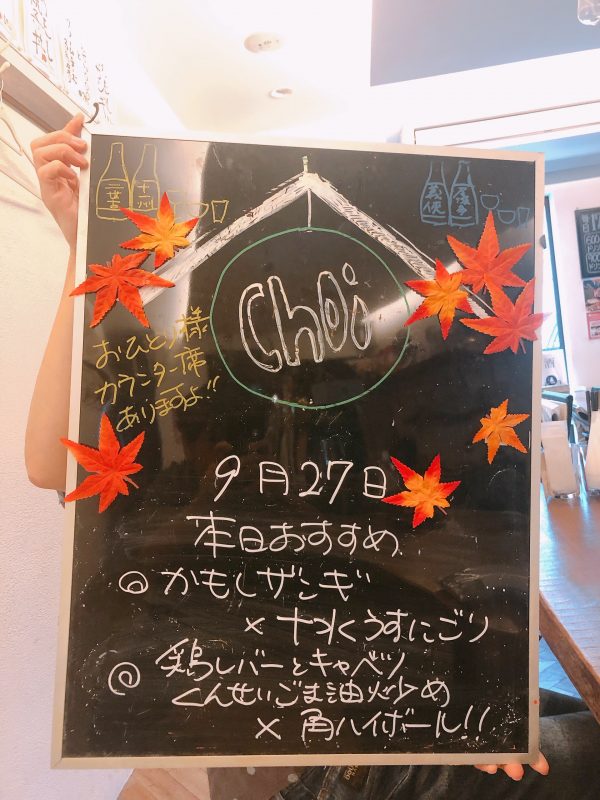 十二州
Choi
おひとり様
カウンター席
ありますよ!!
9月27日
本日おすすめ
◎かもしザンギ
×十水うすにごり
◎鶏レバーとキャベツ
くんせいごま油炒め
×角ハイボール!!